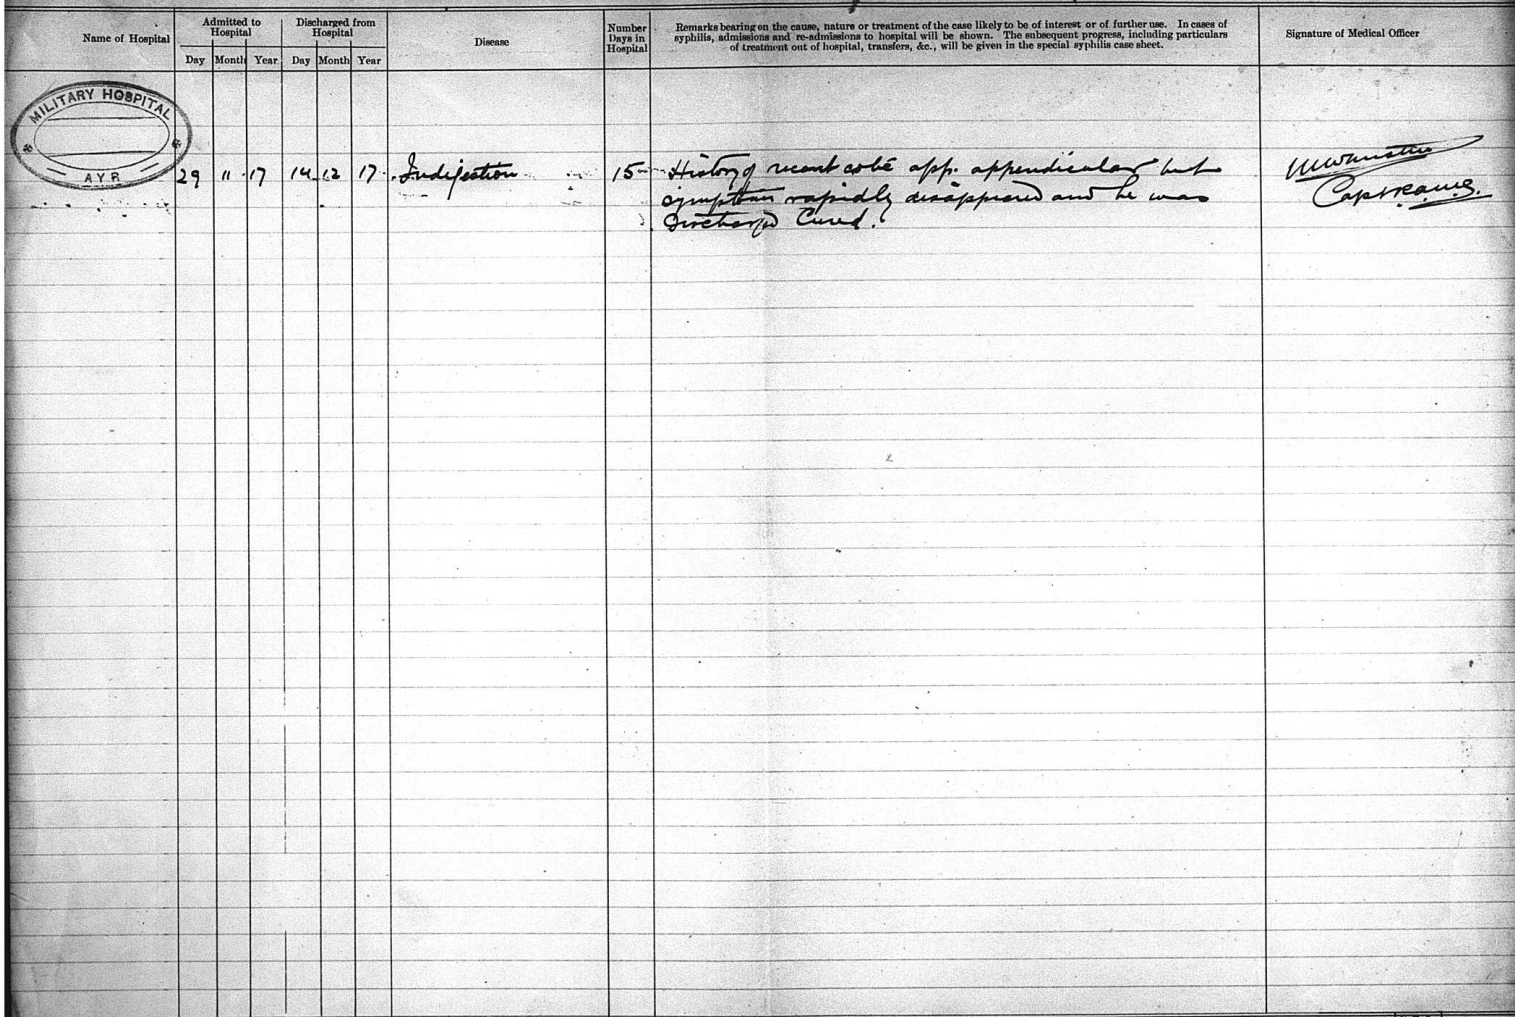 Name of Hospital
Admitted to
Hospital
Day Month Year
Discharged from
Hospital
Day Month Year
Disease
Number
Days in
Hospital
Remarks bearing on the cause, nature or treatment of the case likely to be of interest or of further use. In cases of
syphilis, admissions and re-admissions to hospital will be shown. The subsequent progress, including particulars
of treatment out of hospital, transfers, &c., will be given in the special syphilis case sheet.
Signature of Medical Officer
MILITARY HOSPITAL
AYR
29 11 17 14 12 17 Indigestion 15 History of recent app. appendicular but
symptoms rapidly disappeared and he was
Discharged Cured.
Capt R.A.M.C.